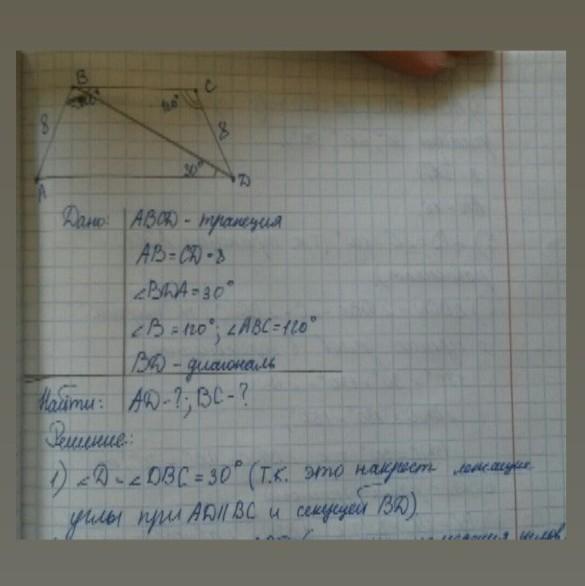 B
C
120°
8
8
30°
A
D
Дано: ABCD - трапеция
AB = CD = 8
∠BDA = 30°
∠B = 120°; ∠ABC = 120°
BD - диагональ
Найти: AD - ?; BC - ?
Решение:
1) ∠D = ∠DBC = 30° (т.к. это накрест лежащие
углы при AD∥BC и секущей BD).